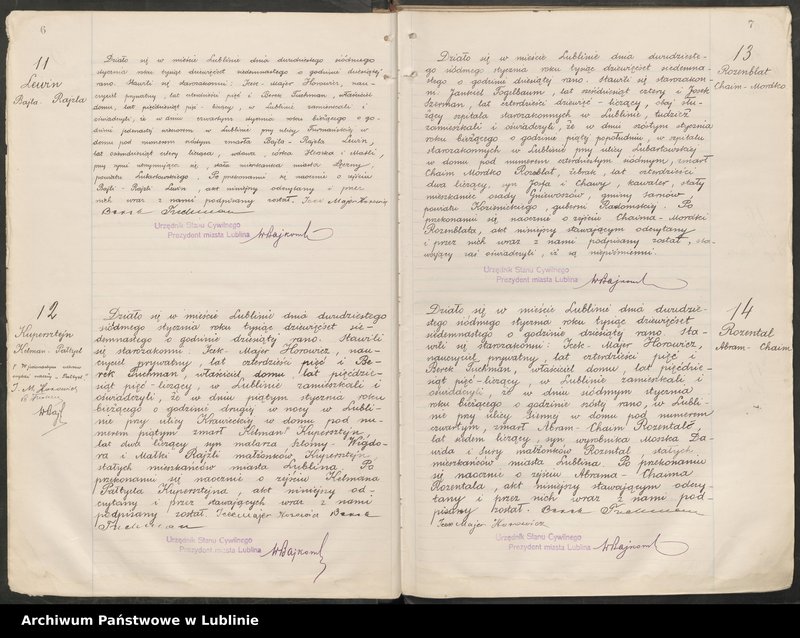 6
11
Lewin
Bajla-Rajzla
Działo się w mieście Lublinie dnia dwudziestego siódmego
stycznia roku tysiąc dziewięćset siedemnastego o godzinie dziesiątej
rano. Stawili się starozakonni: Icek-Majer Horowicz, nau-
czyciel prywatny, lat czterdzieści pięć i Berek Tuchman, właściciel
domu, lat pięćdziesiąt pięć-liczący, w Lublinie zamieszkali i
oświadczyli, że w dniu czwartym stycznia roku bieżącego o go-
dzinie jedenastej wieczorem w Lublinie przy ulicy Furmańskiej w
domu pod numerem szóstym zmarła Bajla-Rajzla Lewin,
lat osiemdziesiąt cztery licząca, wdowa, córka Herszka i Matki,
przy synu utrzymująca się, stała mieszkanka miasta
powiatu Lubartowskiego. Po przekonaniu się naocznie o zejściu
Bajli-Rajzli Lewin, akt niniejszy odczytany i przez
nich wraz z nami podpisany został. Icek Majer Horowicz
Berek
Urzędnik Stanu Cywilnego
Prezydent miasta Lublina
12
Kupersztejn
Kelman-Paltyel
I. M. Horowicz
Działo się w mieście Lublinie dnia dwudziestego
siódmego stycznia roku tysiąc dziewięćset sie-
demnastego o godzinie dziesiątej rano. Stawili
się starozakonni: Icek-Majer Horowicz, nau-
czyciel prywatny, lat czterdzieści pięć i Be-
rek Tuchman, właściciel domu, lat pięćdzie-
siąt pięć-liczący, w Lublinie zamieszkali i
oświadczyli, że w dniu piątym stycznia roku
bieżącego o godzinie drugiej w nocy w Lubli-
nie przy ulicy Krawieckiej w domu pod nu-
merem piątym zmarł Kelman Kupersztejn,
lat dwa liczący, syn malarza Szlomy-Wigdo-
ra i Malki Rajzli małżonków Kupersztejn,
stałych mieszkańców miasta Lublina. Po
przekonaniu się naocznie o zejściu Kelmana
Paltyela Kupersztejna, akt niniejszy od-
czytany i przez stawających wraz z nami
podpisany został. Icek Majer Horowicz Berek
Urzędnik Stanu Cywilnego
Prezydent miasta Lublina
7
13
Rozenblat
Chaim-Mordko
Działo się w mieście Lublinie dnia dwudzieste-
go siódmego stycznia roku tysiąc dziewięćset siedemna-
stego o godzinie dziesiątej rano. Stawili się starozakon-
ni Jankiel Fogelbaum, lat sześćdziesiąt cztery i Josek
Szerman, lat czterdzieści dziewięć-liczący, obaj słu-
żący szpitala starozakonnych w Lublinie, tudzież
zamieszkali i oświadczyli, że w dniu szóstym stycznia
roku bieżącego o godzinie piątej popołudniu, w szpitalu
starozakonnych w Lublinie przy ulicy Lubartowskiej
w domu pod numerem czterdziestym siódmym, zmarł
Chaim Mordko Rozenblat, żebrak, lat czterdzieści
dwa liczący, syn Josfa i Chawy, kawaler, stały
mieszkaniec osady Gniewoszów, gminy Sarnów
powiatu Kozienickiego, guberni Radomskiej. Po
przekonaniu się naocznie o zejściu Chaima-Mordki
Rozenblata, akt niniejszy stawającym odczytany
i przez nich wraz z nami podpisany został, sta-
wający zaś oświadczyli, iż są niepiśmienni.
Urzędnik Stanu Cywilnego
Prezydent miasta Lublina
14
Rozental
Abram-Chaim
Działo się w mieście Lublinie dnia dwudzie-
stego siódmego stycznia roku tysiąc dziewięćset
siedemnastego o godzinie dziesiątej rano. Sta-
wili się starozakonni: Icek-Majer Horowicz,
nauczyciel prywatny, lat czterdzieści pięć i
Berek Tuchman, właściciel domu, lat pięćdzie-
siąt pięć-liczący, w Lublinie zamieszkali i
oświadczyli, że w dniu siódmym stycznia
roku bieżącego o godzinie szóstej rano, w Lubli-
nie przy ulicy Zimnej w domu pod numerem
czwartym, zmarł Abram-Chaim Rozental,
lat siedem liczący, syn wyrobnika Moszka Da-
wida i Sury małżonków Rozental, stałych
mieszkańców miasta Lublina. Po przekonaniu
się naocznie o zejściu Abrama-Chaima
Rozentala, akt niniejszy stawającym odczy-
tany i przez nich wraz z nami pod-
pisany został. Berek
Icek Majer Horowicz
Urzędnik Stanu Cywilnego
Prezydent miasta Lublina
Archiwum Państwowe w Lublinie